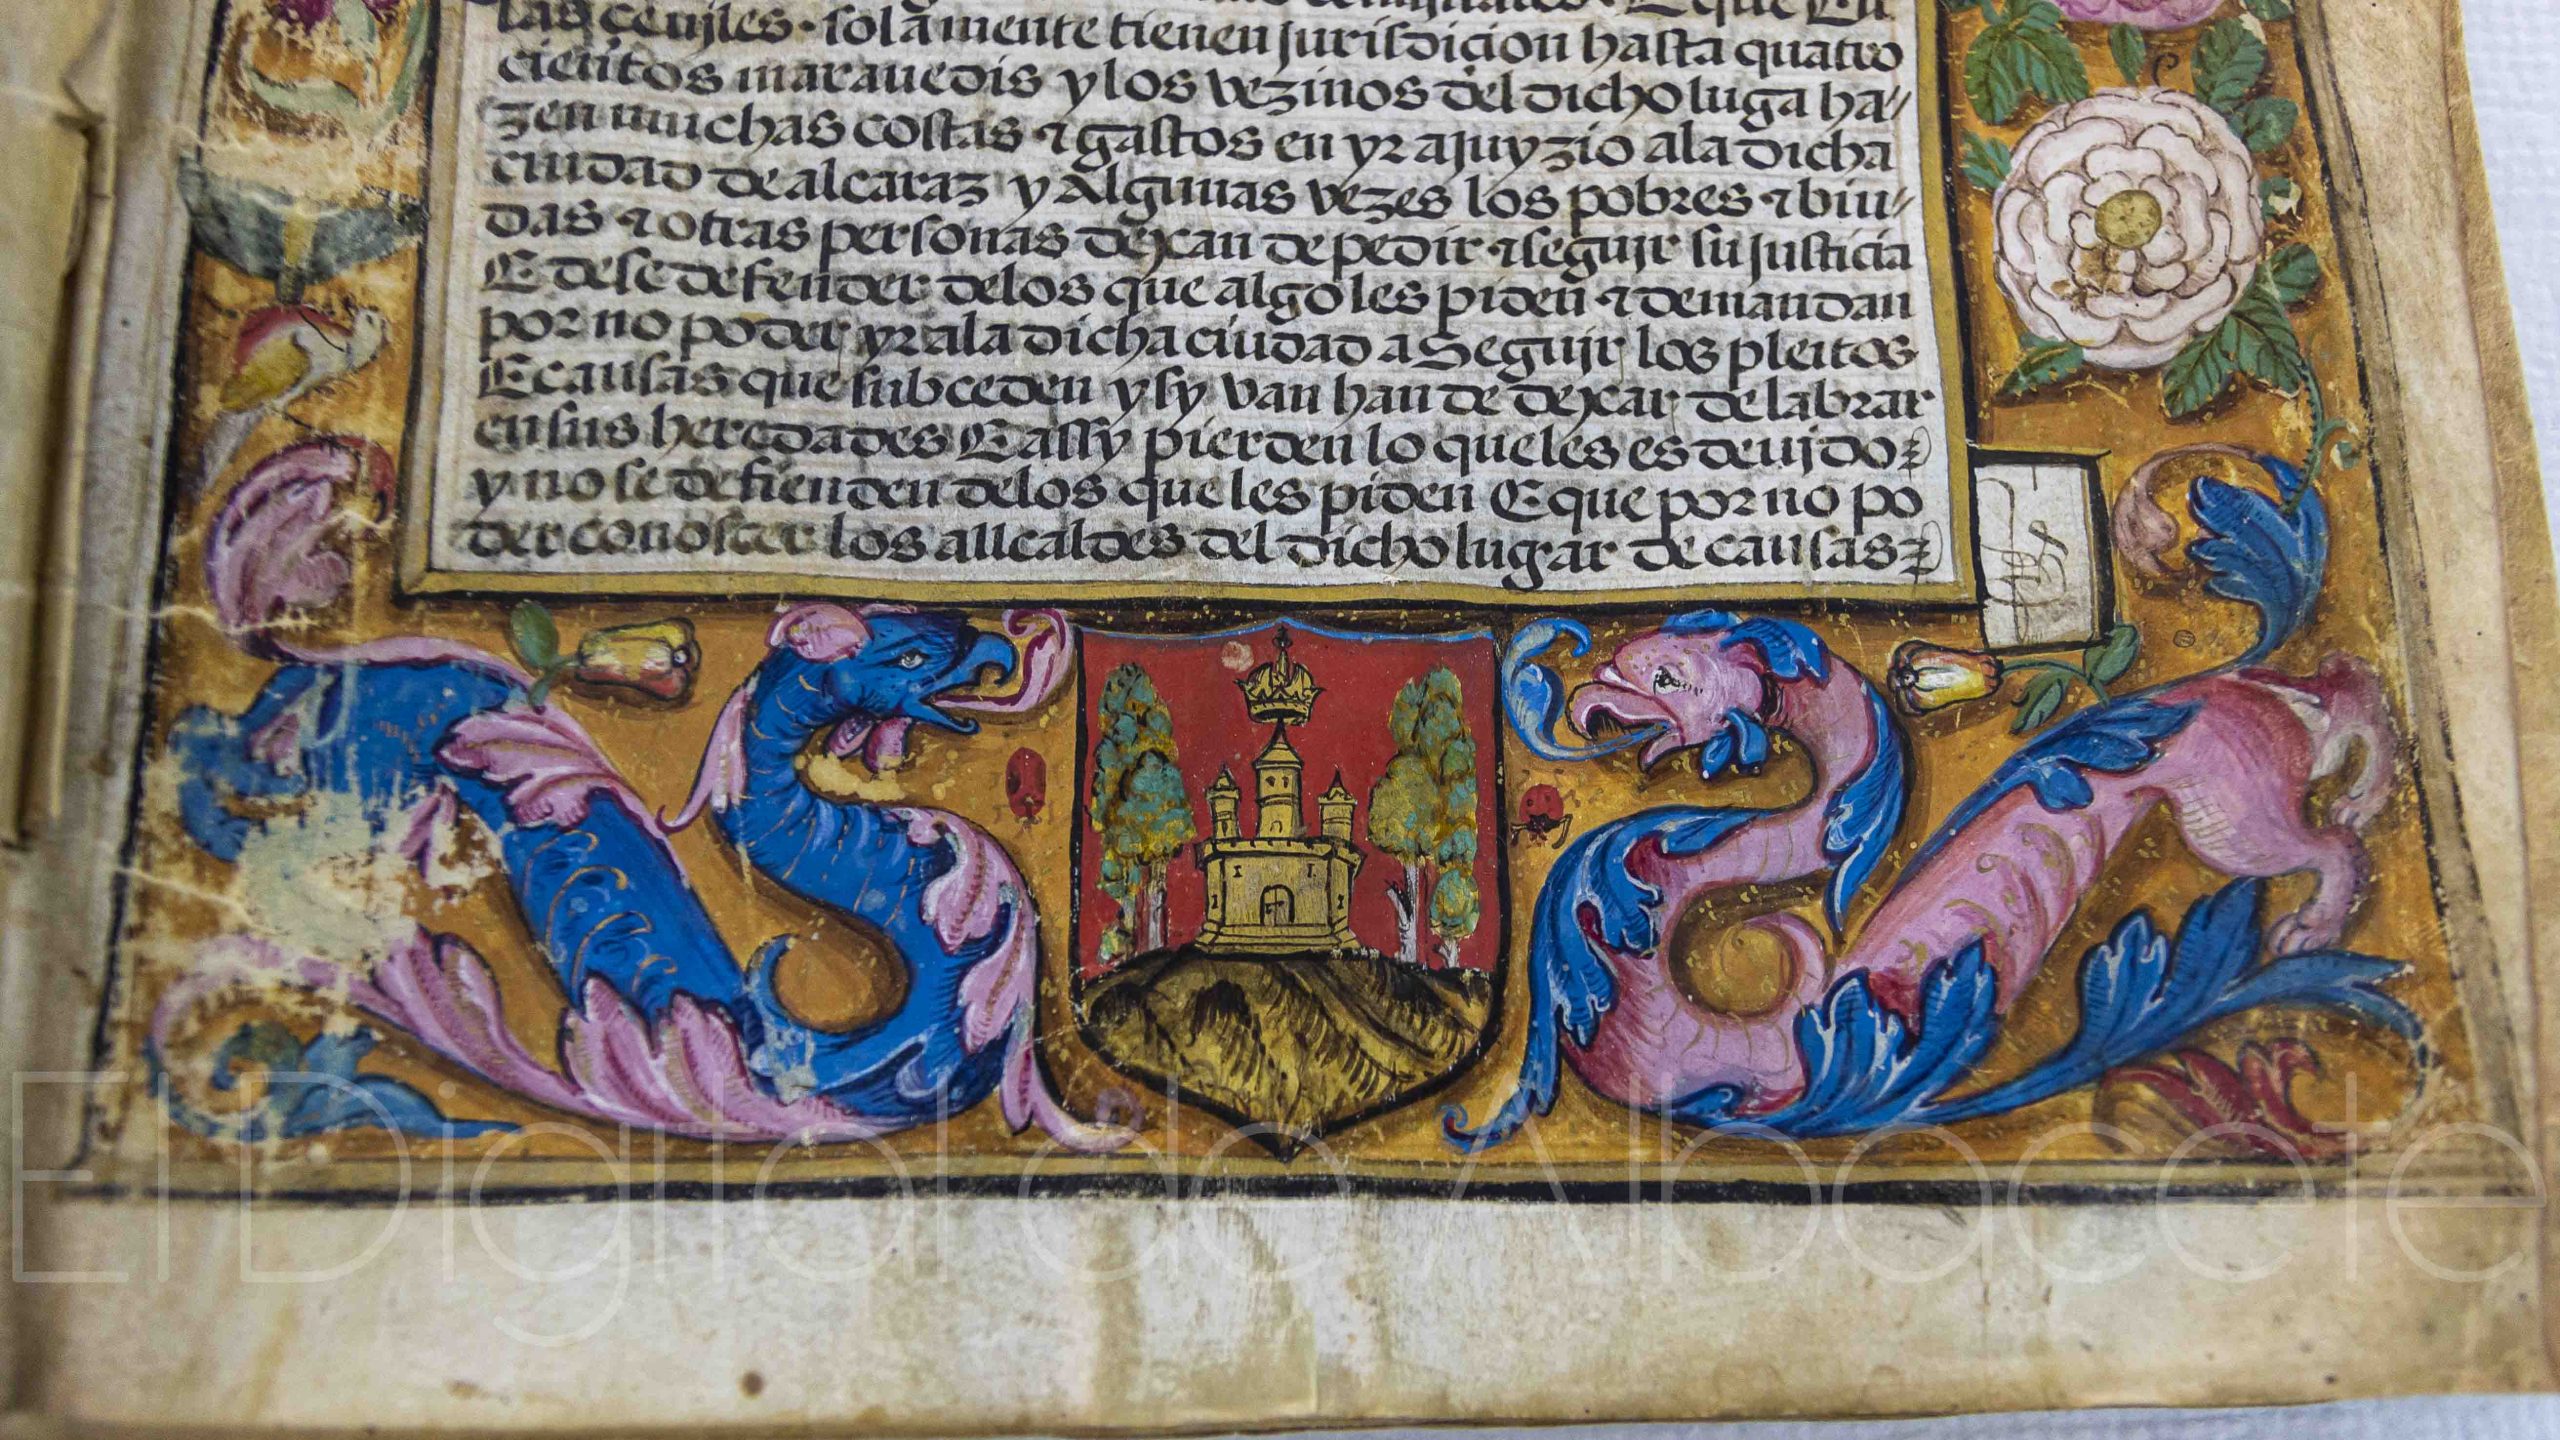 las ceviles · solamente tienen jurisdicion hasta quatro
cientos marauedis y los vezinos del dicho luga ha
zen muchas costas ⁊ gastos en yr a juyzio ala dicha
ciudad de alcaraz y Algunas vezes los pobres ⁊ biu
das ⁊ otras personas dexan de pedir ⁊ seguir su justicia
E de se defender delos que algo les piden ⁊ demandan
por no poder yr ala dicha ciudad a Seguir los pleitos
E causas que subceden y sy van han de dexar de labrar
en sus heredades E assy pierden lo que les es deuido
y no se defienden delos que les piden E que por no po
der conoscer los allcaldes del dicho lugar de causas
El Digital de Albacete